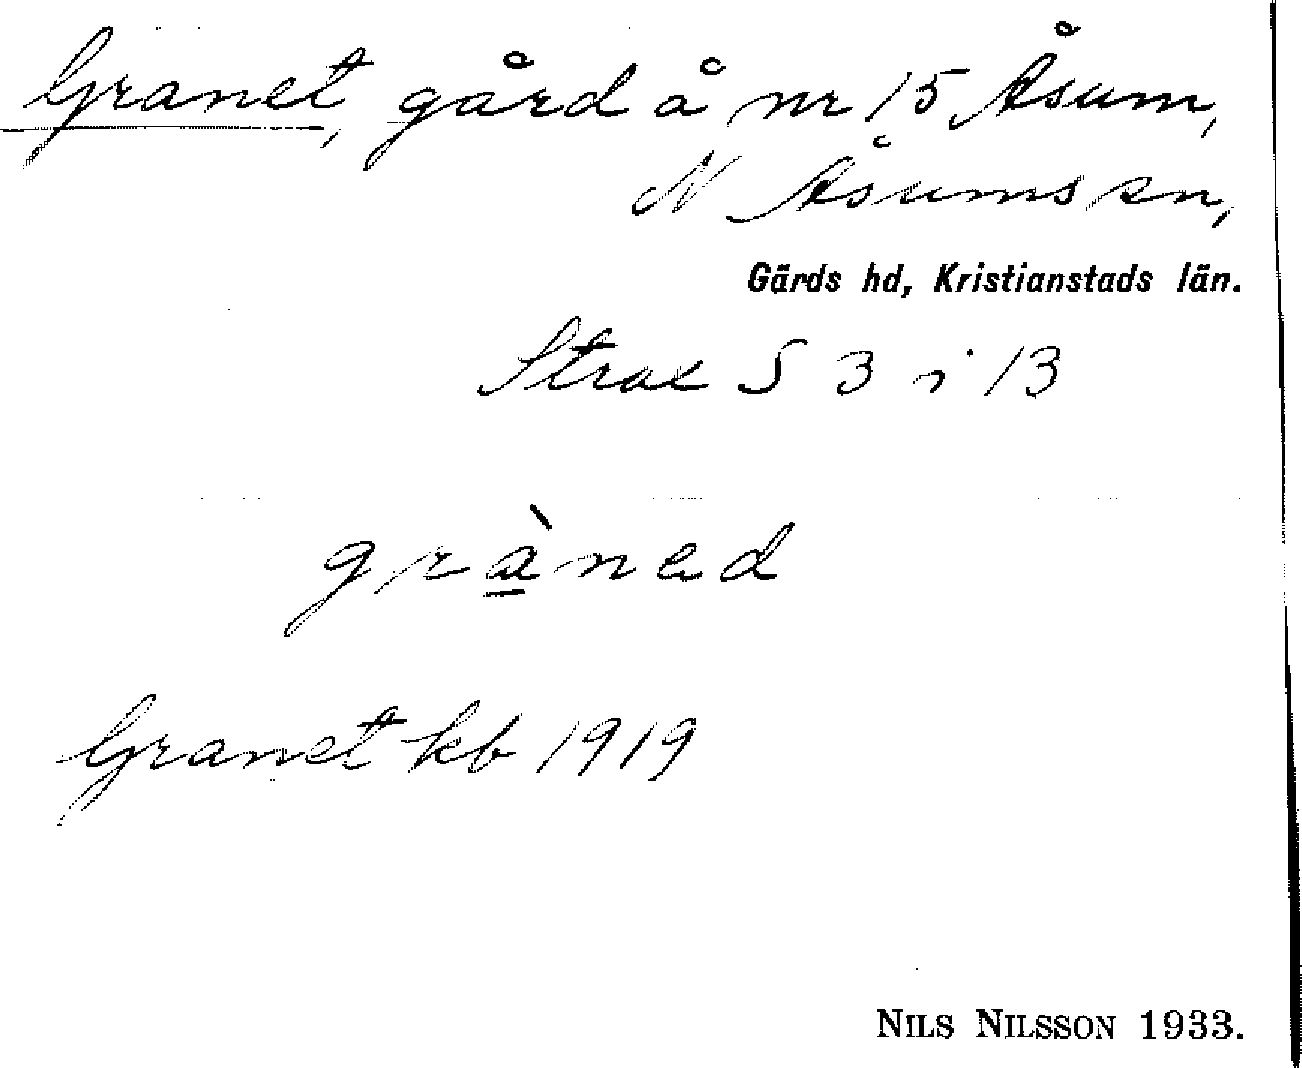 Granet, gård å nr 15 Åsum,
N Åsums sn,
Gärds hd, Kristianstads län.
Strax S 3 i 13
gràned
Granet kb 1919
NILS NILSSON 1933.